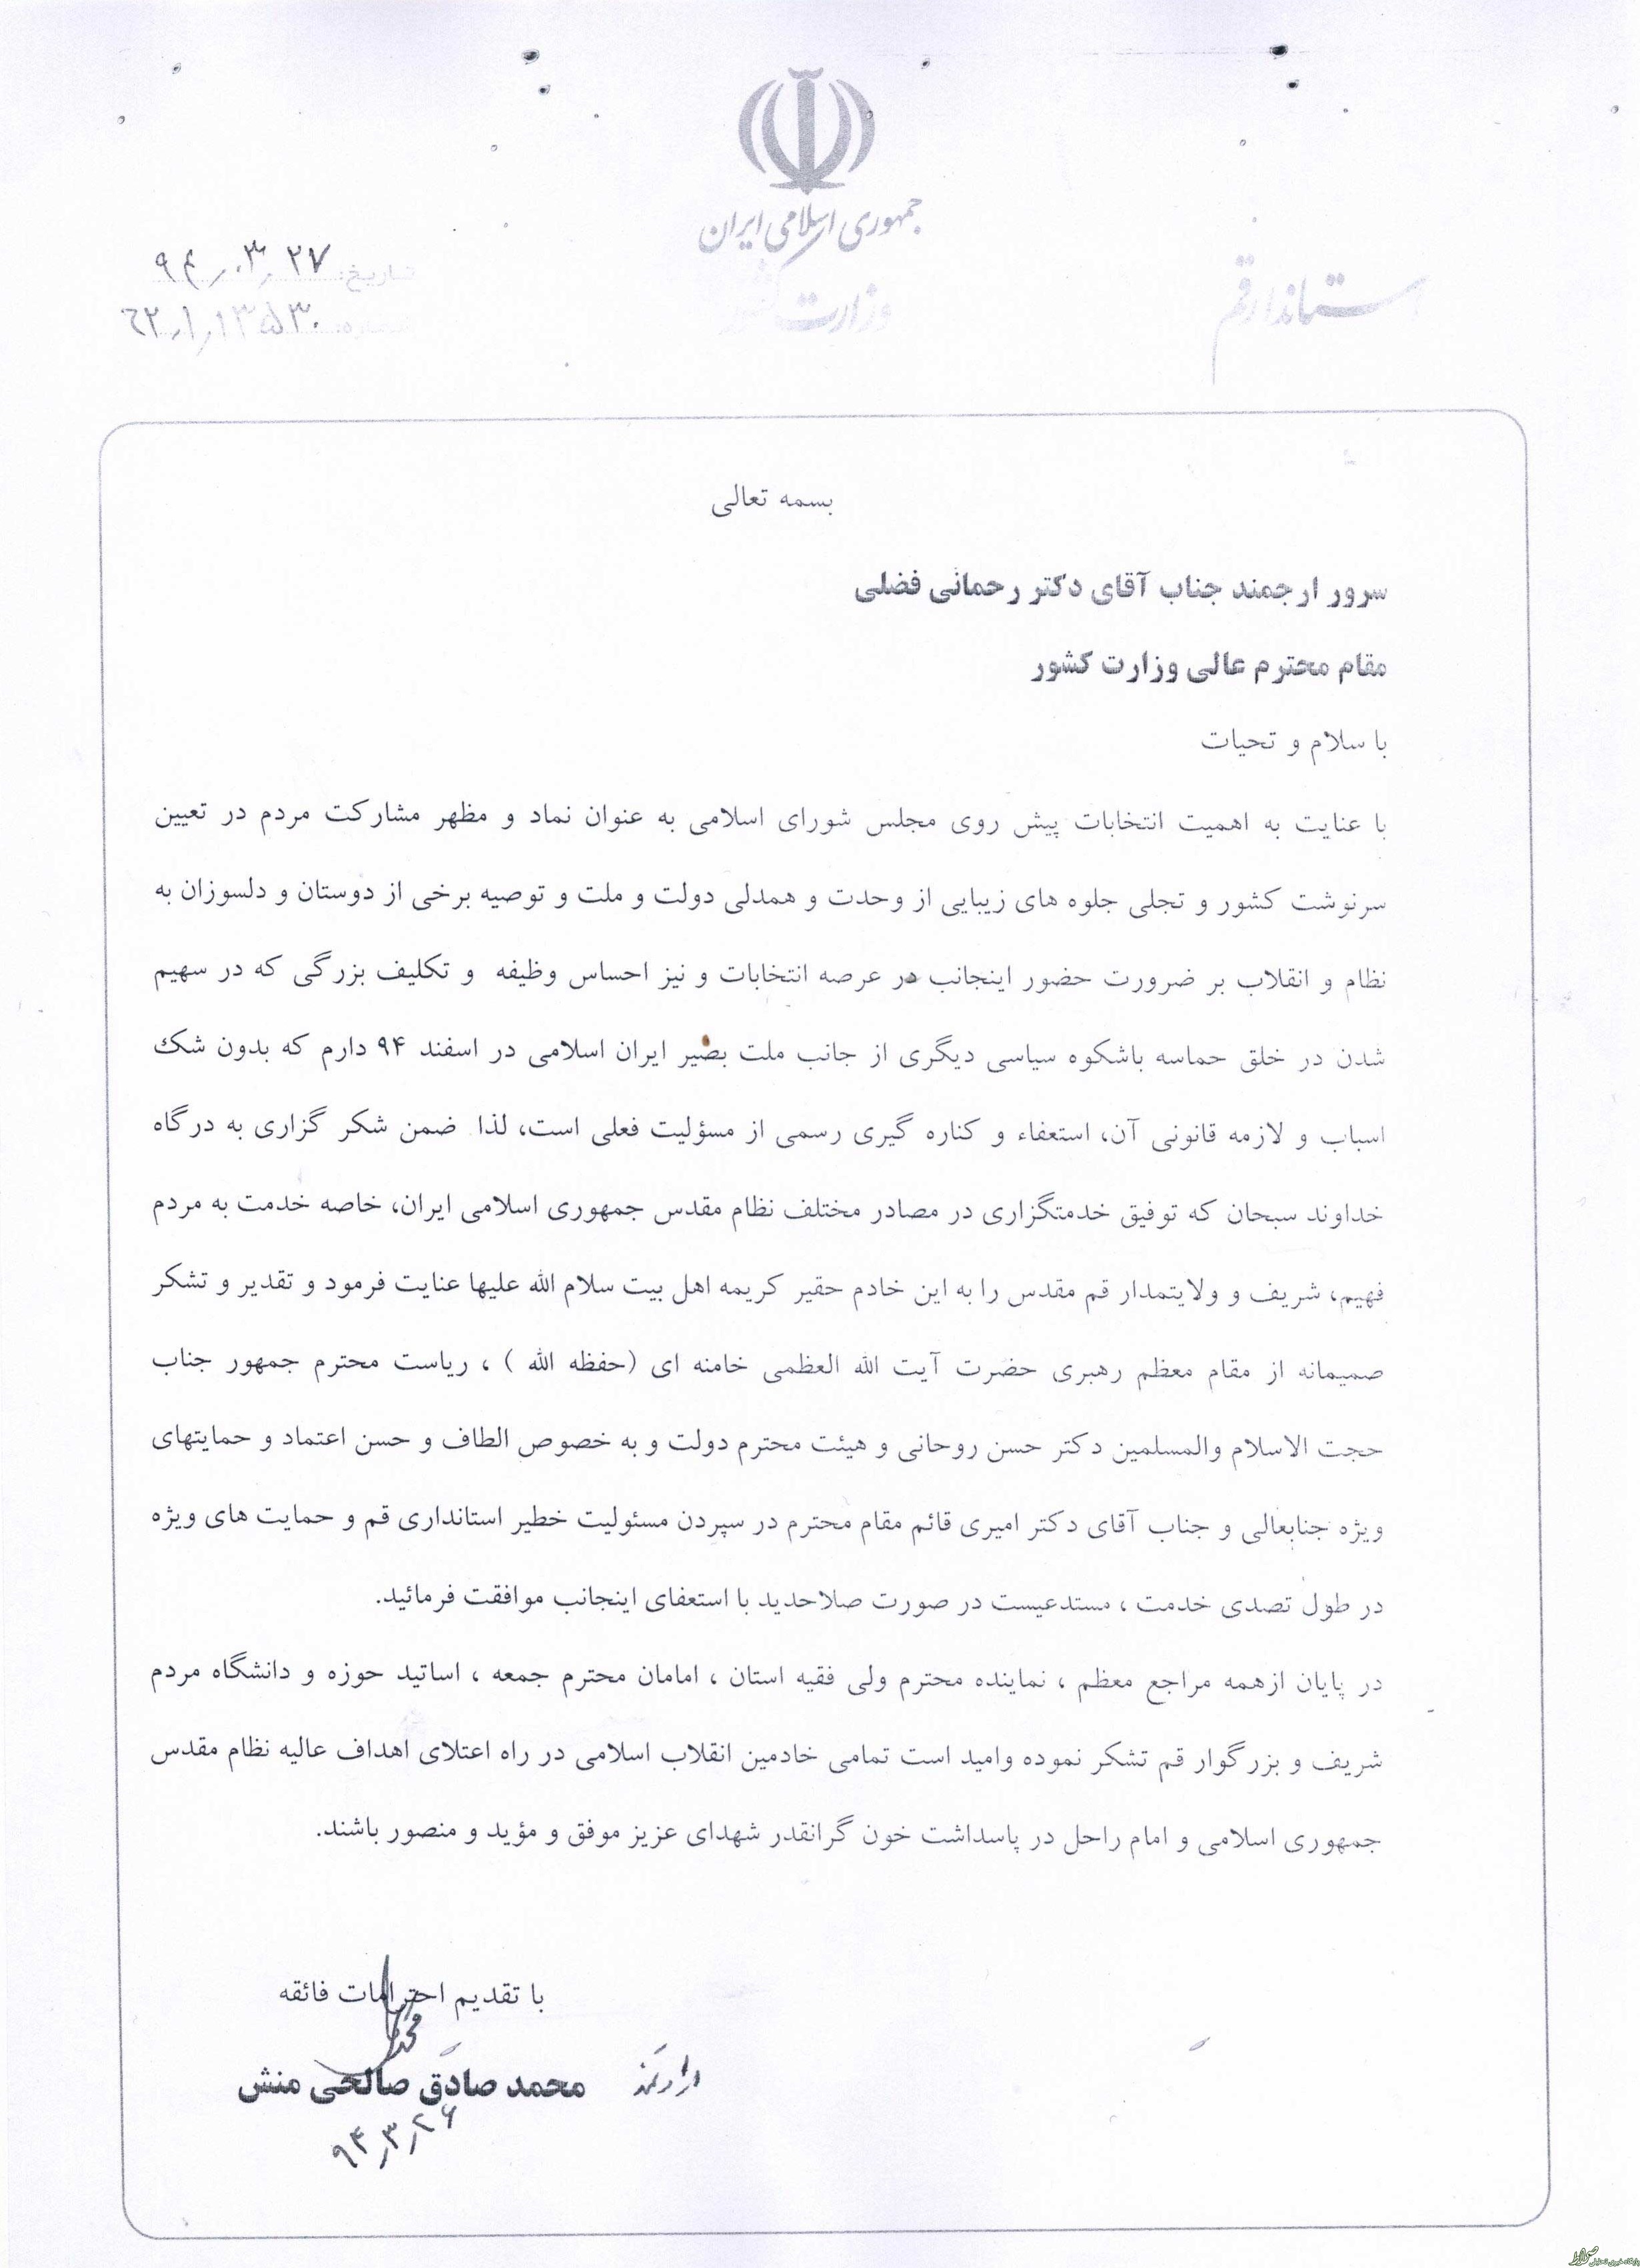 جمهوری اسلامی ایران
وزارت کشور
استاندار قم
تاریخ: ۹۴/۰۳/۲۷
شماره:
بسمه تعالی
سرور ارجمند جناب آقای دکتر رحمانی فضلی
مقام محترم عالی وزارت کشور
با سلام و تحیات
با عنایت به اهمیت انتخابات پیش روی مجلس شورای اسلامی به عنوان نماد و مظهر مشارکت مردم در تعیین
سرنوشت کشور و تجلی جلوه های زیبایی از وحدت و همدلی دولت و ملت و توصیه برخی از دوستان و دلسوزان به
نظام و انقلاب بر ضرورت حضور اینجانب در عرصه انتخابات و نیز احساس وظیفه و تکلیف بزرگی که در سهیم
شدن در خلق حماسه باشکوه سیاسی دیگری از جانب ملت بصیر ایران اسلامی در اسفند ۹۴ دارم که بدون شک
اسباب و لازمه قانونی آن، استعفاء و کناره گیری رسمی از مسؤلیت فعلی است، لذا ضمن شکر گزاری به درگاه
خداوند سبحان که توفیق خدمتگزاری در مصادر مختلف نظام مقدس جمهوری اسلامی ایران، خاصه خدمت به مردم
فهیم، شریف و ولایتمدار قم مقدس را به این خادم حقیر کریمه اهل بیت سلام الله علیها عنایت فرمود و تقدیر و تشکر
صمیمانه از مقام معظم رهبری حضرت آیت الله العظمی خامنه ای (حفظه الله ) ، ریاست محترم جمهور جناب
حجت الاسلام والمسلمین دکتر حسن روحانی و هیئت محترم دولت و به خصوص الطاف و حسن اعتماد و حمایتهای
ویژه جنابعالی و جناب آقای دکتر امیری قائم مقام محترم در سپردن مسئولیت خطیر استانداری قم و حمایت های ویژه
در طول تصدی خدمت ، مستدعیست در صورت صلاحدید با استعفای اینجانب موافقت فرمائید.
در پایان ازهمه مراجع معظم ، نماینده محترم ولی فقیه استان ، امامان محترم جمعه ، اساتید حوزه و دانشگاه مردم
شریف و بزرگوار قم تشکر نموده وامید است تمامی خادمین انقلاب اسلامی در راه اعتلای اهداف عالیه نظام مقدس
جمهوری اسلامی و امام راحل در پاسداشت خون گرانقدر شهدای عزیز موفق و مؤید و منصور باشند.
با تقدیم احترامات فائقه
ارادتمند محمد صادق صالحی منش
۹۴/۳/۲۶